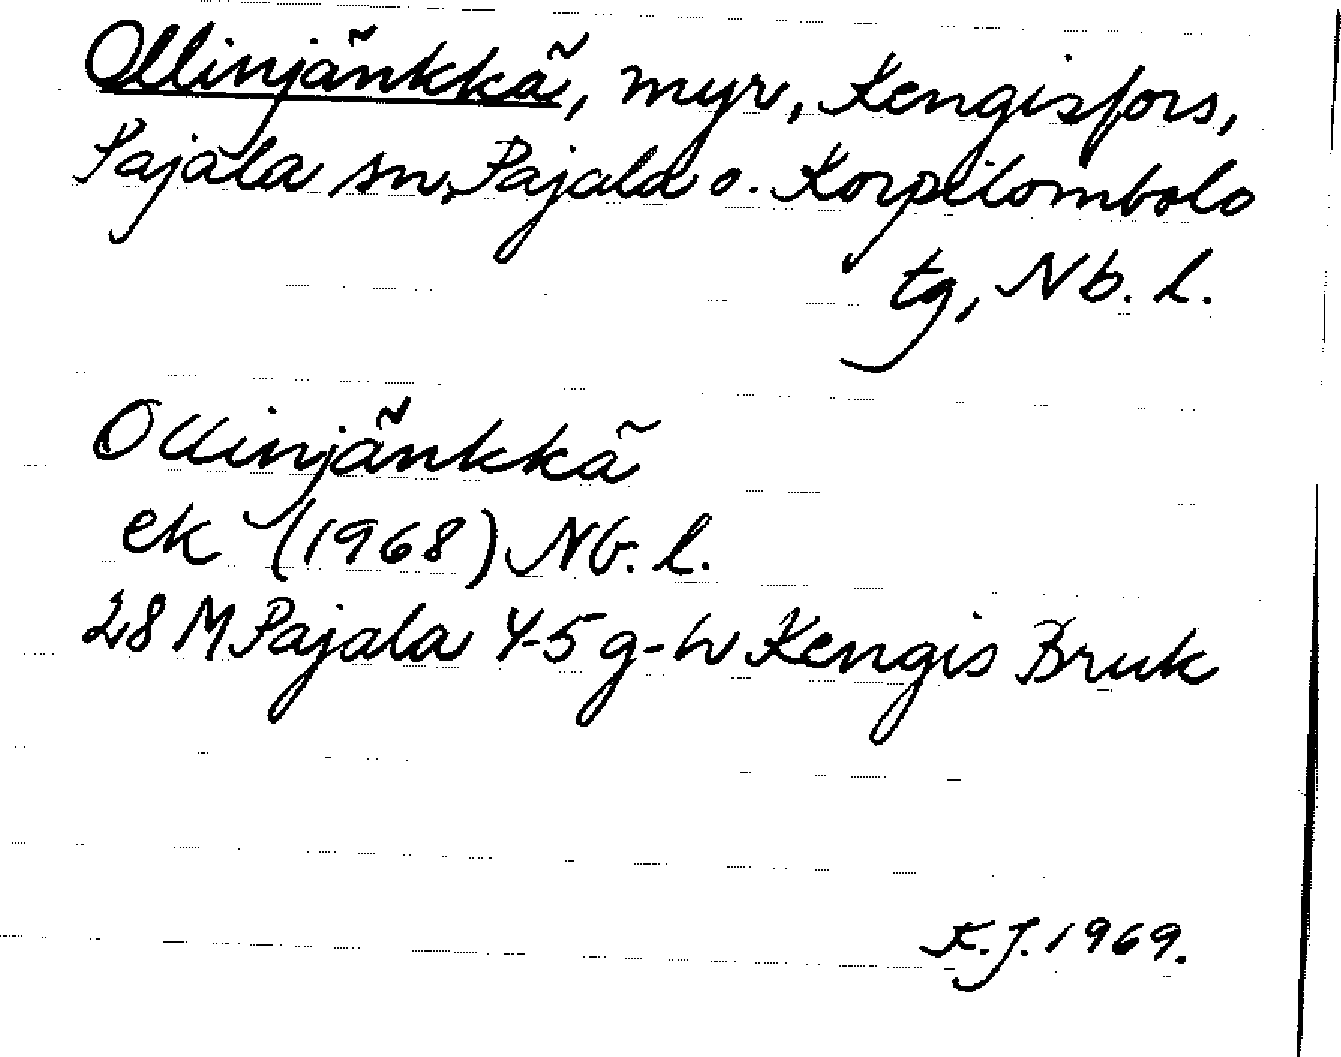 Ollinjänkkä, myr, Kengisfors,
Pajala sn, Pajala o. Korpilombolo
tg, Nb. l.
Ollinjänkkä
ek (1968) Nb. l.
28 M Pajala 4-5 g-h Kengis Bruk
K.J. 1969.